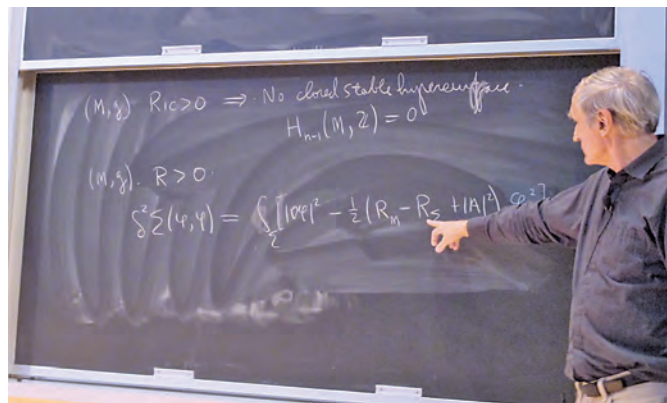 (M, g) Ric>0 ⇒ No closed stable hypersurface.
H_{n-1}(M, Z) = 0
(M, g). R > 0.
δ²Σ(φ, φ) = ∫_Σ [|∇φ|² − ½ (R_M − R_Σ + |A|²) φ²].